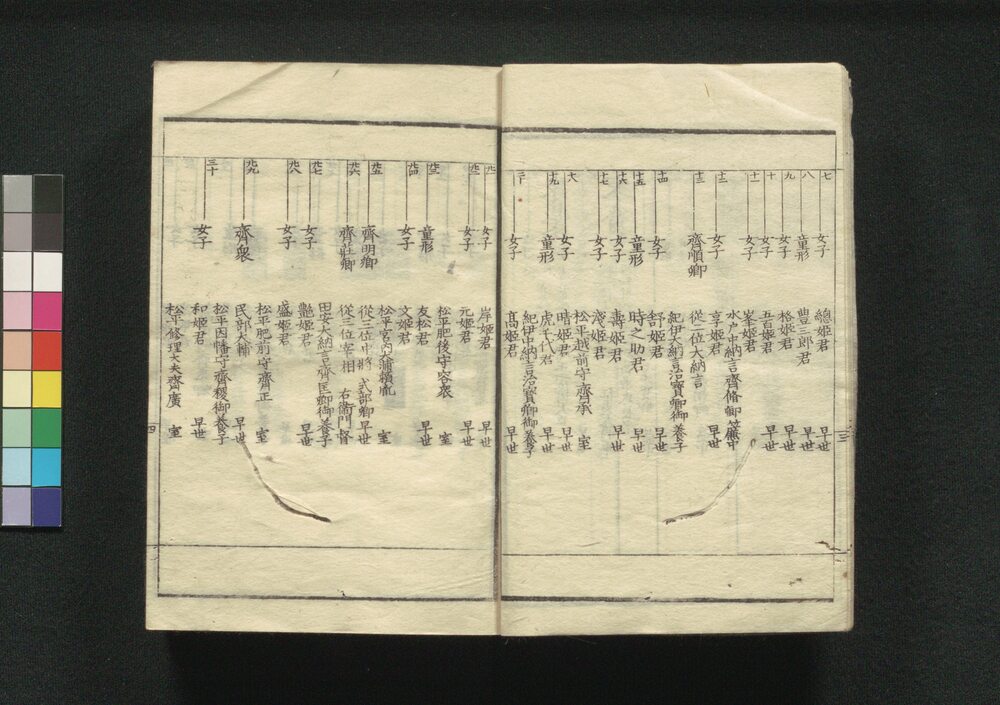 七 女子 總姫君 早世
八 童形 豊三郎君 早世
九 女子 格姫君 早世
十 女子 五百姫君 早世
十一 女子 峯姫君
水戸中納言齊脩卿簾中
十二 女子 享姫君 早世
十三 齊順卿 從二位大納言
紀伊大納言治寶卿御養子
十四 女子 舒姫君 早世
十五 童形 時之助君 早世
十六 女子 壽姫君 早世
十七 女子 淺姫君
松平越前守齊承 室
十八 女子 晴姫君 早世
十九 童形 虎千代君 早世
紀伊中納言治寶卿御養子
二十 女子 高姫君 早世
三
廿一 女子 岸姫君 早世
廿二 女子 元姫君 早世
松平肥後守容衆 室
廿三 童形 友松君 早世
廿四 女子 文姫君
松平宮内大輔頼胤 室
廿五 齊明卿 從三位中將 式部卿 早世
廿六 齊莊卿 從三位宰相 右衞門督
田安大納言齊匡卿御養子
廿七 女子 艶姫君 早世
廿八 女子 盛姫君
松平肥前守齊正 室
廿九 齊衆 民部大輔 早世
松平因幡守齊稷御養子
三十 女子 和姫君 早世
松平修理大夫齊廣 室
四